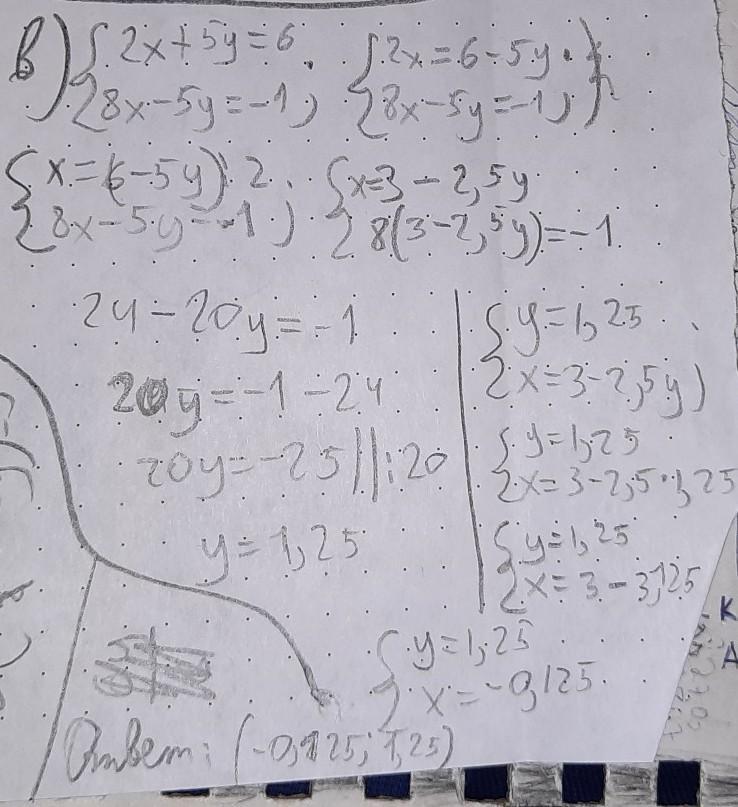 в) { 2x+5y=6 { 2x=6-5y
{ 8x-5y=-1; { 8x-5y=-1;
{ x=(6-5y):2 { x=3-2,5y
{ 8x-5y=-1; { 8(3-2,5y)=-1
24-20y=-1
20y=-1-24
20y=-25||:20
y=1,25
{ y=1,25
{ x=3-2,5y;
{ y=1,25
{ x=3-2,5·1,25
{ y=1,25
{ x=3-3,125
{ y=1,25
{ x=-0,125
Ответ: (-0,125; 1,25)
К
А